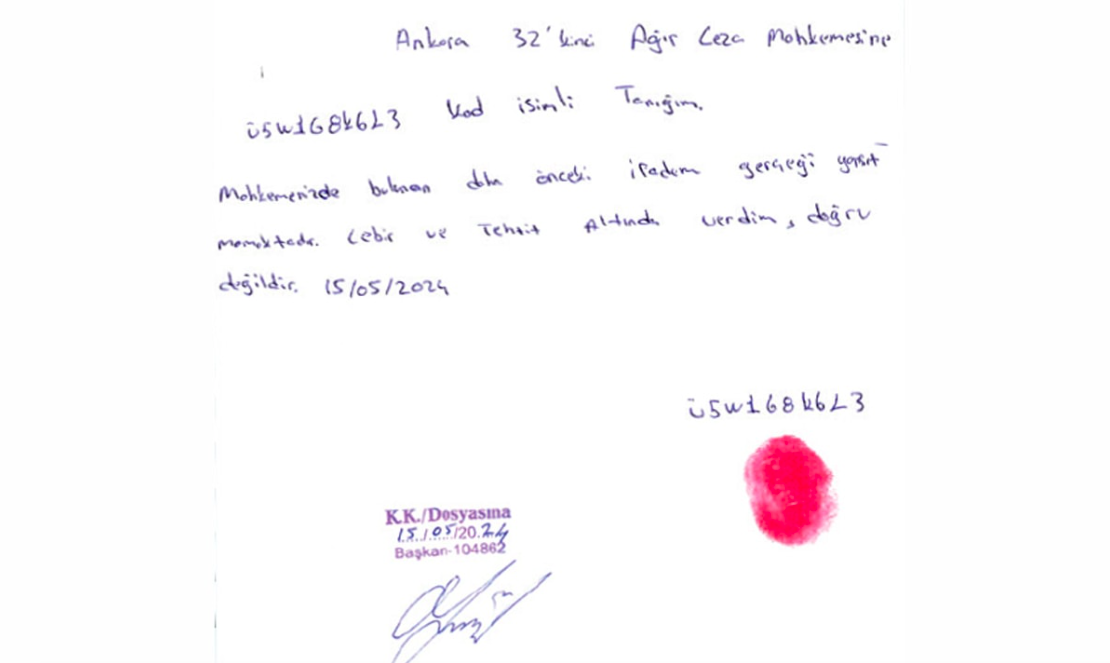 Ankara 32'kinci Ağır Ceza Mahkemesine
Ü5W168K6L3 kod isimli Tanığım.
Mahkemenizde bulunan daha önceki ifadem gerçeği yansıt
mamaktadır. Cebir ve Tehtit Altında verdim, doğru
değildir. 15/05/2024
Ü5W168K6L3
K.K./Dosyasına
15/05/2024
Başkan-104862